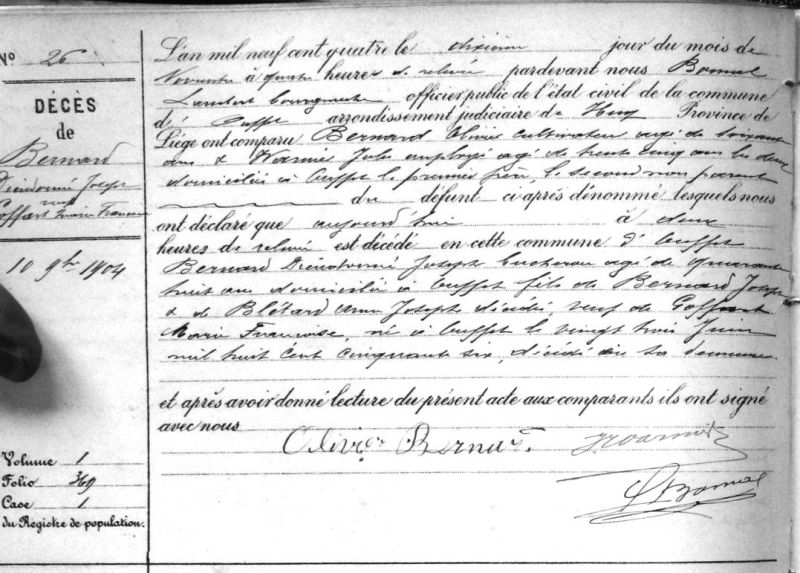 N° 26
DÉCÈS
de
Bernard
Dieudonné Joseph
veuf
Goffart Marie Francoise
10 9bre 1904
Volume 1
Folio 369
Case 1
du Registre de population.
L'an mil neuf cent quatre le dixième jour du mois de
Novembre à quatre heures de relevée pardevant nous Bonmal
Lambert bourgmestre officier public de l'état civil de la commune
de Ouffet arrondissement judiciaire de Huy Province de
Liége ont comparu Bernard Olivier cultivateur agé de soixante
ans & Joles employé agé de trente cinq ans les deux
domiciliés à Ouffet le premier frère le second non parent
du défunt ci après dénommé lesquels nous
ont déclaré que aujourd'hui à deux
heures de relevée est décédé en cette commune d'Ouffet
Bernard Dieudonné Joseph bucheron agé de quarante
huit ans domicilié à Ouffet fils de Bernard Joseph
& de Blétard Anne Joseph décédés, veuf de Goffart
Marie Francoise, né à Ouffet le vingt trois Juin
mil huit cent cinquante six, décédé en sa demeure.
et après avoir donné lecture du présent acte aux comparants ils ont signé
avec nous
Olivier Bernard.
LBonmal